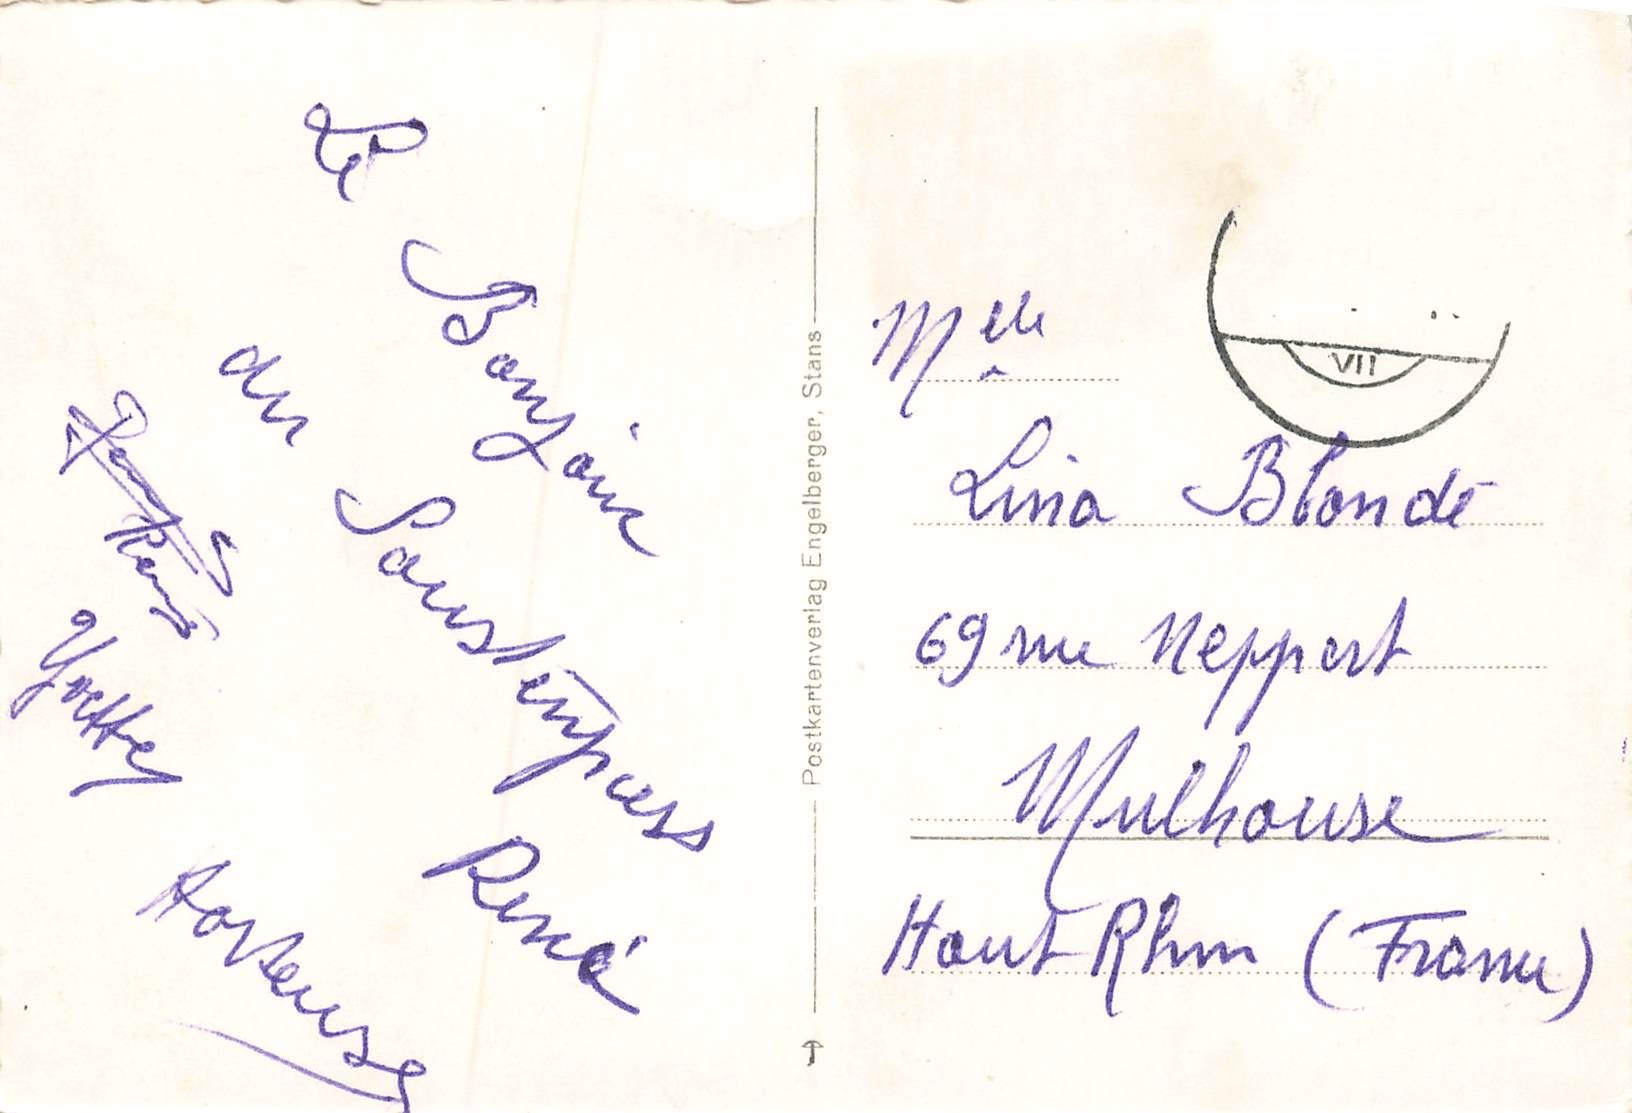 Le
Bonjour
du
Soustenpass
René
Remy
Yvette
Hortense
Postkartenverlag Engelberger, Stans
VII
Melle
Lina Blondé
69 rue Neppert
Mulhouse
Haut Rhin (France)